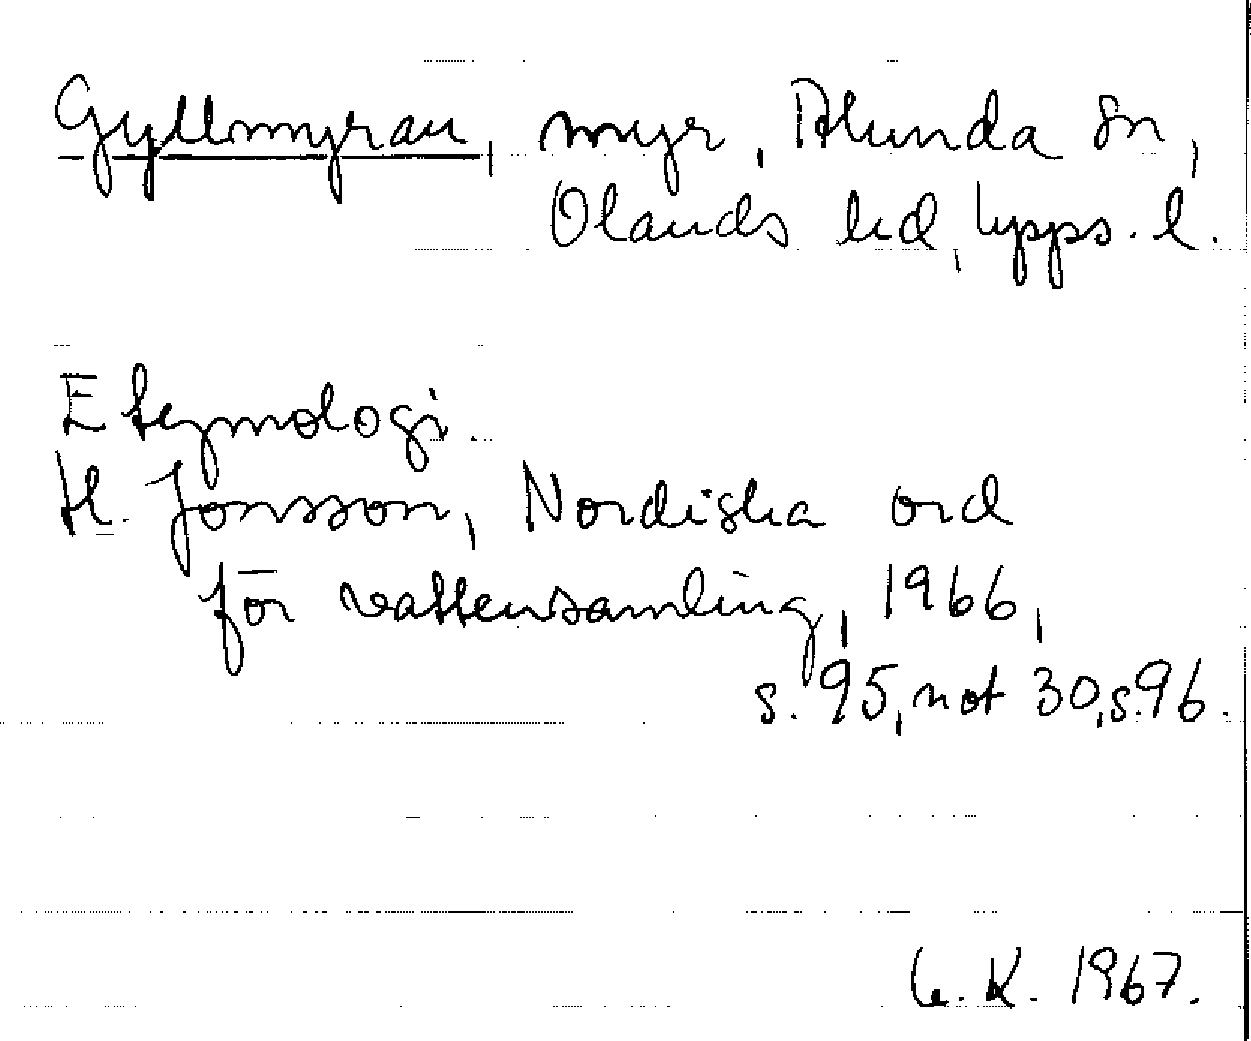 Gyllmyran, myr, Alunda sn,
Olands hd, Upps. l.
Etymologi.
H. Jonsson, Nordiska ord
för vattensamling, 1966,
s. 95, not 30, s. 96.
G. K. 1967.